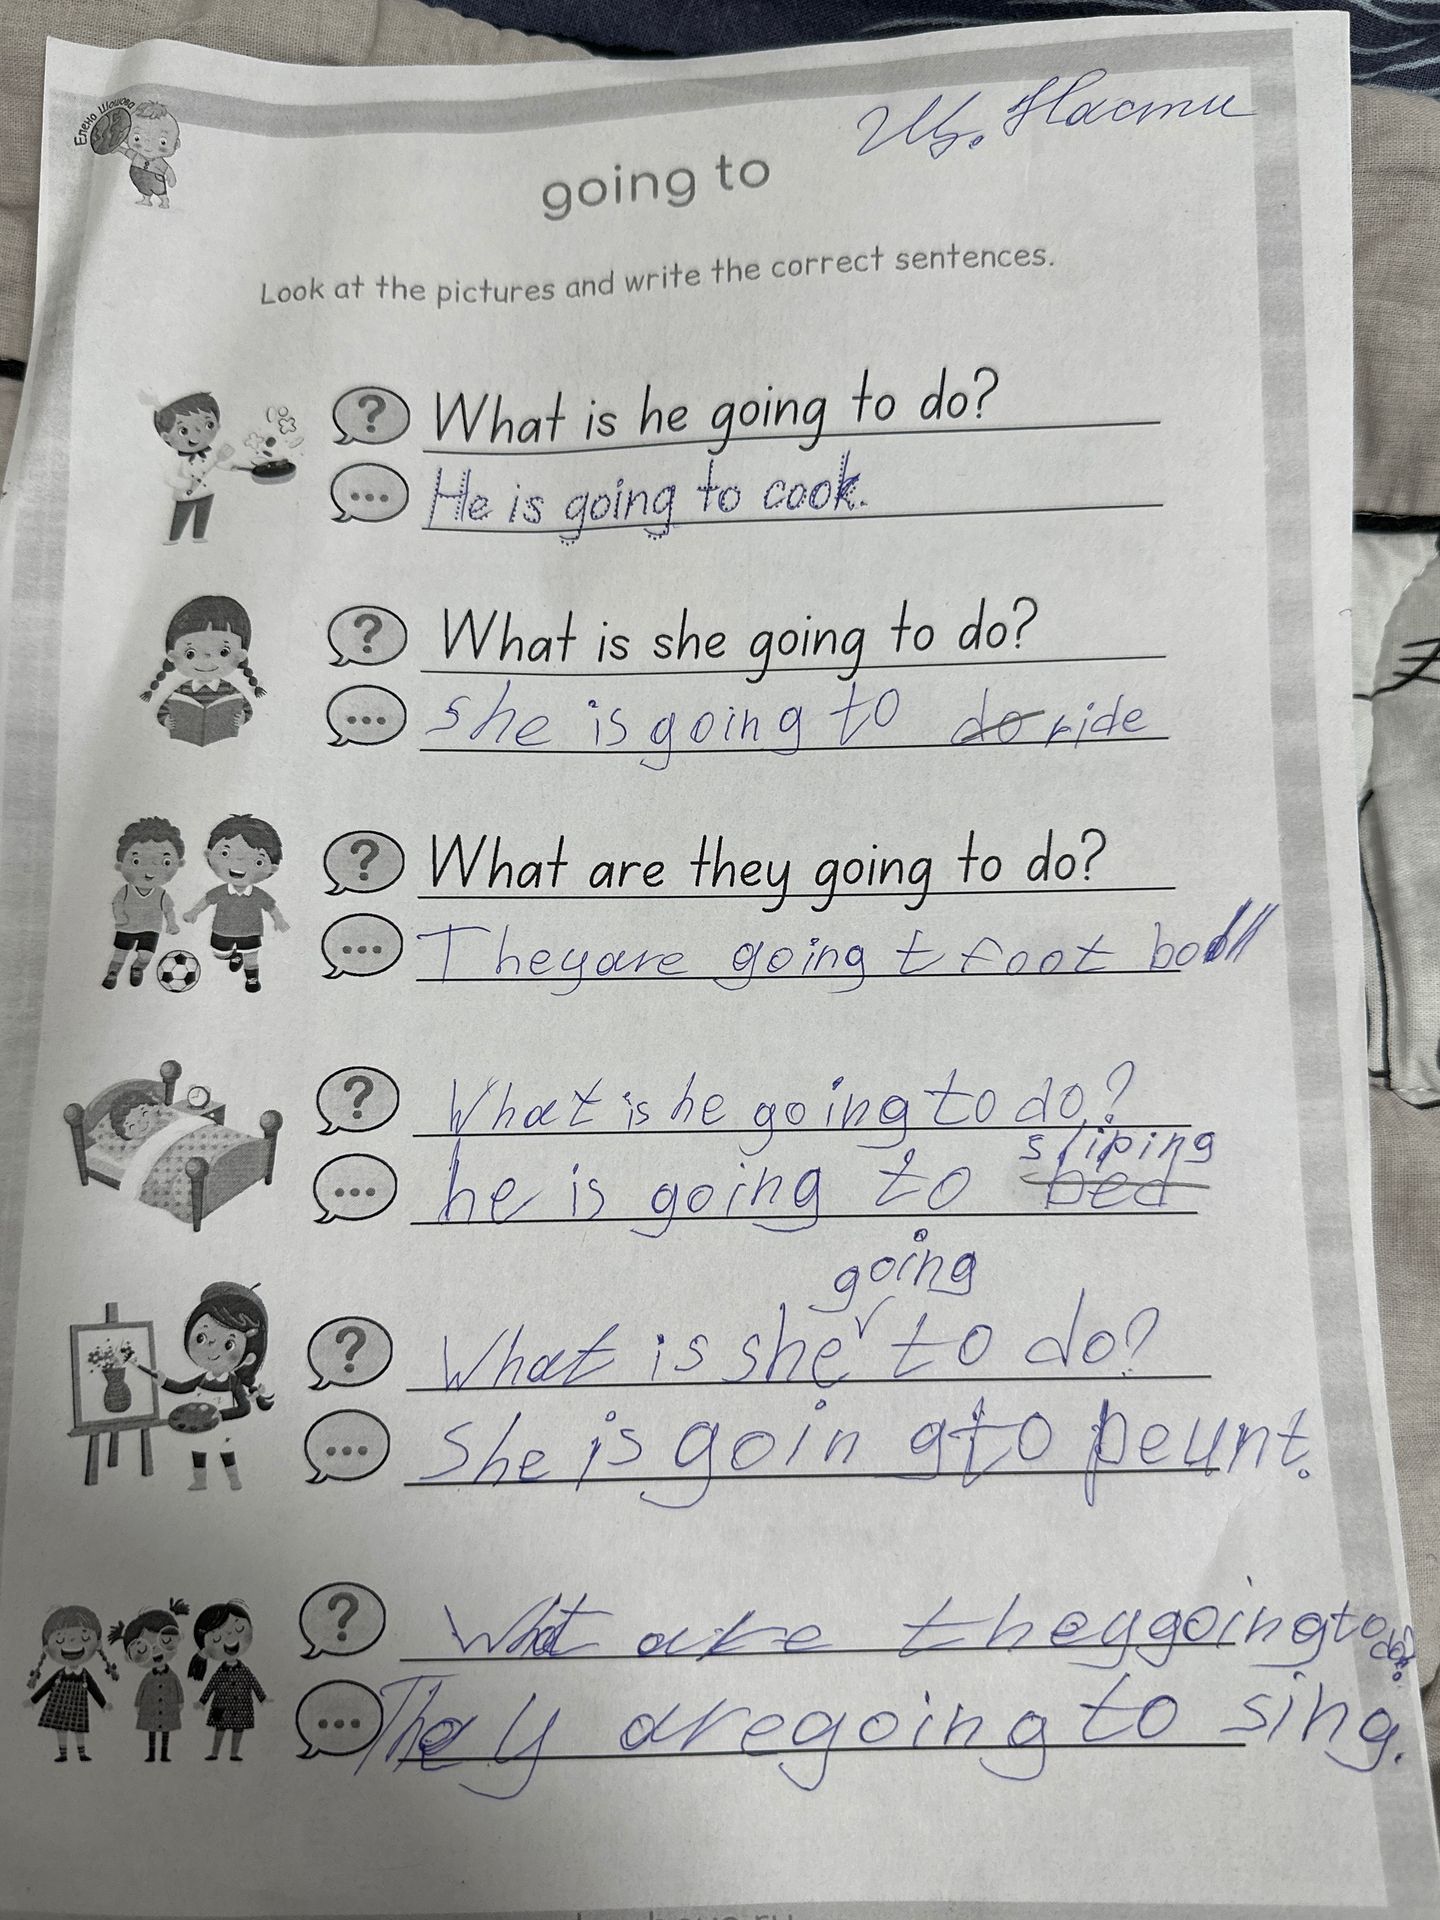 Елена Шошова
Ив. Насти
going to
Look at the pictures and write the correct sentences.
What is he going to do?
He is going to cook.
What is she going to do?
she is going to do ride
What are they going to do?
They are going t foot ball
What is he going to do?
sliping
he is going to bed
going
What is she to do?
She is goin gto peunt.
What are they going to do?
They are going to sing.